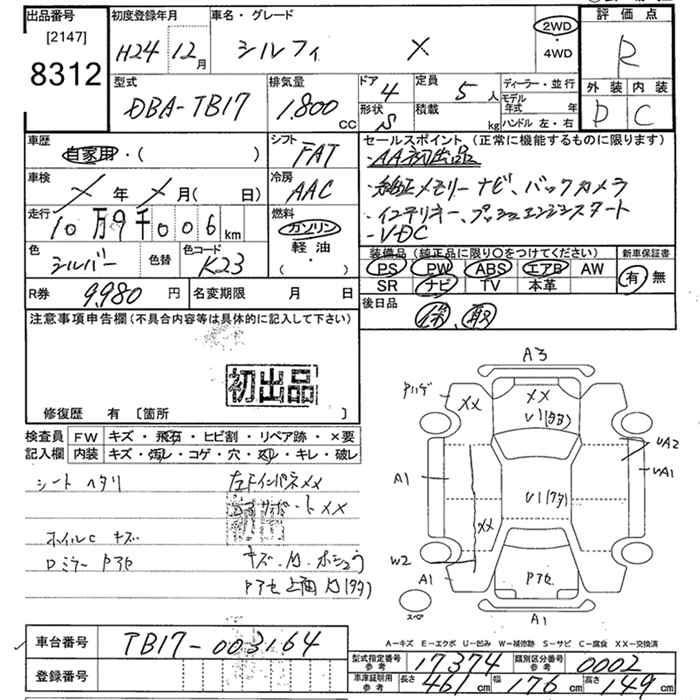 出品番号
[2147]
8312
初度登録年月
H24 12月
車名・グレード
シルフィ X
2WD
・
4WD
評価点
R
外装 内装
D C
型式
DBA-TB17
排気量
1.800 CC
ドア 4
形状 S
定員 5人
積載 kg
ディーラー・並行
モデル年式 年
ハンドル 左・右
車歴
自家用・( )
シフト
FAT
車検
X 年 X 月( 日)
冷房
AAC
走行
10万9千006km
燃料
ガソリン
軽油
( ・ )
色
シルバー
色替
色コード
K23
R券 9,980円
名変期限 月 日
セールスポイント (正常に機能するものに限ります)
・AA初出品
・純正メモリーナビ、バックカメラ
・インテリキー、プッシュエンジンスタート
・VDC
装備品 (純正品に限り○をつけてください)
PS PW ABS エアB AW
SR ナビ TV 本革
新車保証書
有・無
後日品
保、取
注意事項申告欄(不具合内容等は具体的に記入して下さい)
初出品
修復歴 有 [箇所 ]
検査員
記入欄
FW キズ・飛石・ヒビ割・リペア跡・×要
内装 キズ・汚レ・コゲ・穴・スレ・キレ・破レ
シート ヘタリ
左FインパネXX
サポートXX
ホイルC キズ
ロミラー Pアセ
キズ・凹・ホシュウ
Pアセ 上面
A3
Pハゲ
XX
XX
U1(タタ)
UA2
UA1
A1
U1(タタ)
XX
W2
A1
Pアセ
A1
スペア
A-キズ E-エクボ U-凹み W-補修跡 S-サビ C-腐食 XX-交換済
車台番号
TB17-003164
登録番号
型式指定番号参考 17374
類別区分番号参考 0002
車庫証明用参考 長さ 461cm 幅 176cm 高さ 149cm